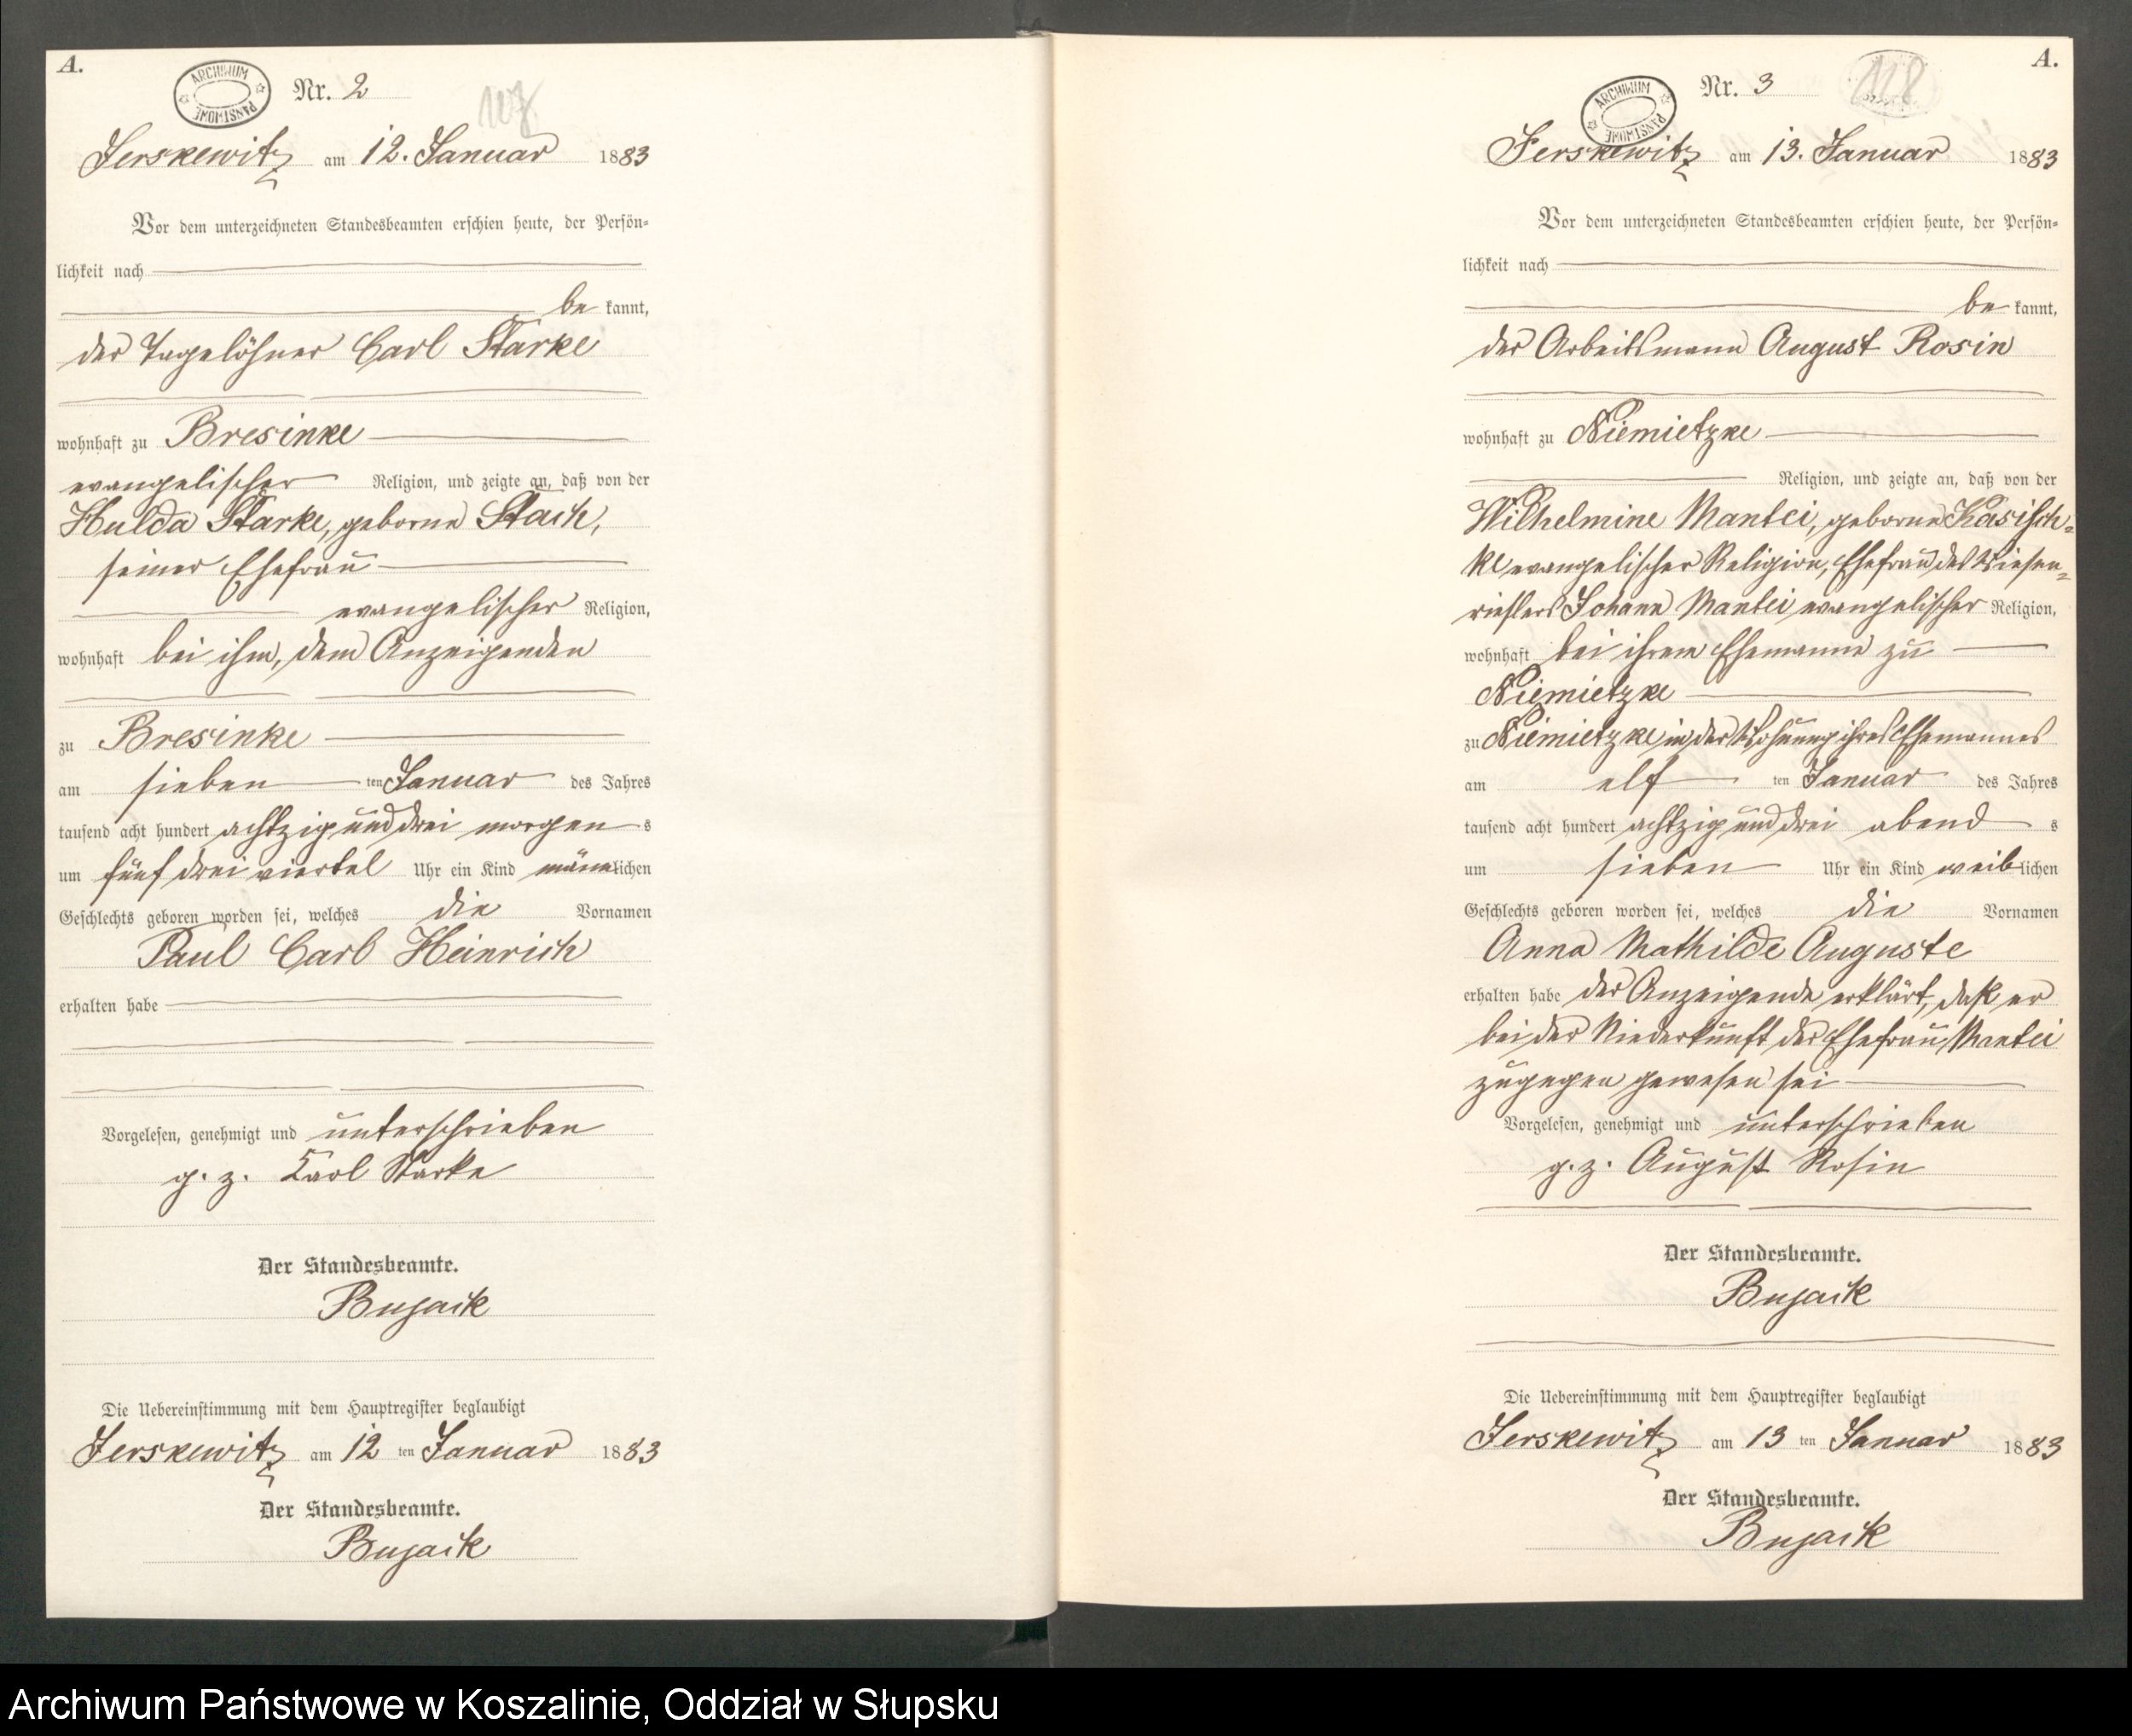 A.
ARCHIWUM PAŃSTWOWE
Nr. 2
Jerskewitz am 12. Januar 1883
Vor dem unterzeichneten Standesbeamten erschien heute, der Persön-
lichkeit nach
be kannt,
der Tagelöhner Carl Starke
wohnhaft zu Bresinke
evangelischer Religion, und zeigte an, daß von der
Hulda Starke, geborne Stach,
seiner Ehefrau
evangelischer Religion,
wohnhaft bei ihm, dem Anzeigenden
zu Bresinke
am sieben ten Januar des Jahres
tausend acht hundert achtzig und drei morgen s
um fünf drei viertel Uhr ein Kind männlichen
Geschlechts geboren worden sei, welches die Vornamen
Paul Carl Heinrich
erhalten habe
Vorgelesen, genehmigt und unterschrieben
g. z. Karl Starke
Der Standesbeamte.
Bujack
Die Uebereinstimmung mit dem Hauptregister beglaubigt
Jerskewitz am 12 ten Januar 1883
Der Standesbeamte.
Bujack
A.
ARCHIWUM PAŃSTWOWE
Nr. 3
118
Jerskewitz am 13. Januar 1883
Vor dem unterzeichneten Standesbeamten erschien heute, der Persön-
lichkeit nach
be kannt,
der Arbeitsmann August Rosin
wohnhaft zu Niemietzke
Religion, und zeigte an, daß von der
Wilhelmine Mantei, geborne Kasisch-
ke evangelischer Religion, Ehefrau des Wiesen-
rieslers Johann Mantei evangelischer Religion,
wohnhaft bei ihrem Ehemanne zu
Niemietzke
zu Niemietzke in der Wohnung ihres Ehemannes
am elf ten Januar des Jahres
tausend acht hundert achtzig und drei abend s
um sieben Uhr ein Kind weiblichen
Geschlechts geboren worden sei, welches die Vornamen
Anna Mathilde Auguste
erhalten habe der Anzeigende erklärt, daß er
bei der Niederkunft der Ehefrau Mantei
zugegen gewesen sei
Vorgelesen, genehmigt und unterschrieben
g. z. August Rosin
Der Standesbeamte.
Bujack
Die Uebereinstimmung mit dem Hauptregister beglaubigt
Jerskewitz am 13 ten Januar 1883
Der Standesbeamte.
Bujack
Archiwum Państwowe w Koszalinie, Oddział w Słupsku